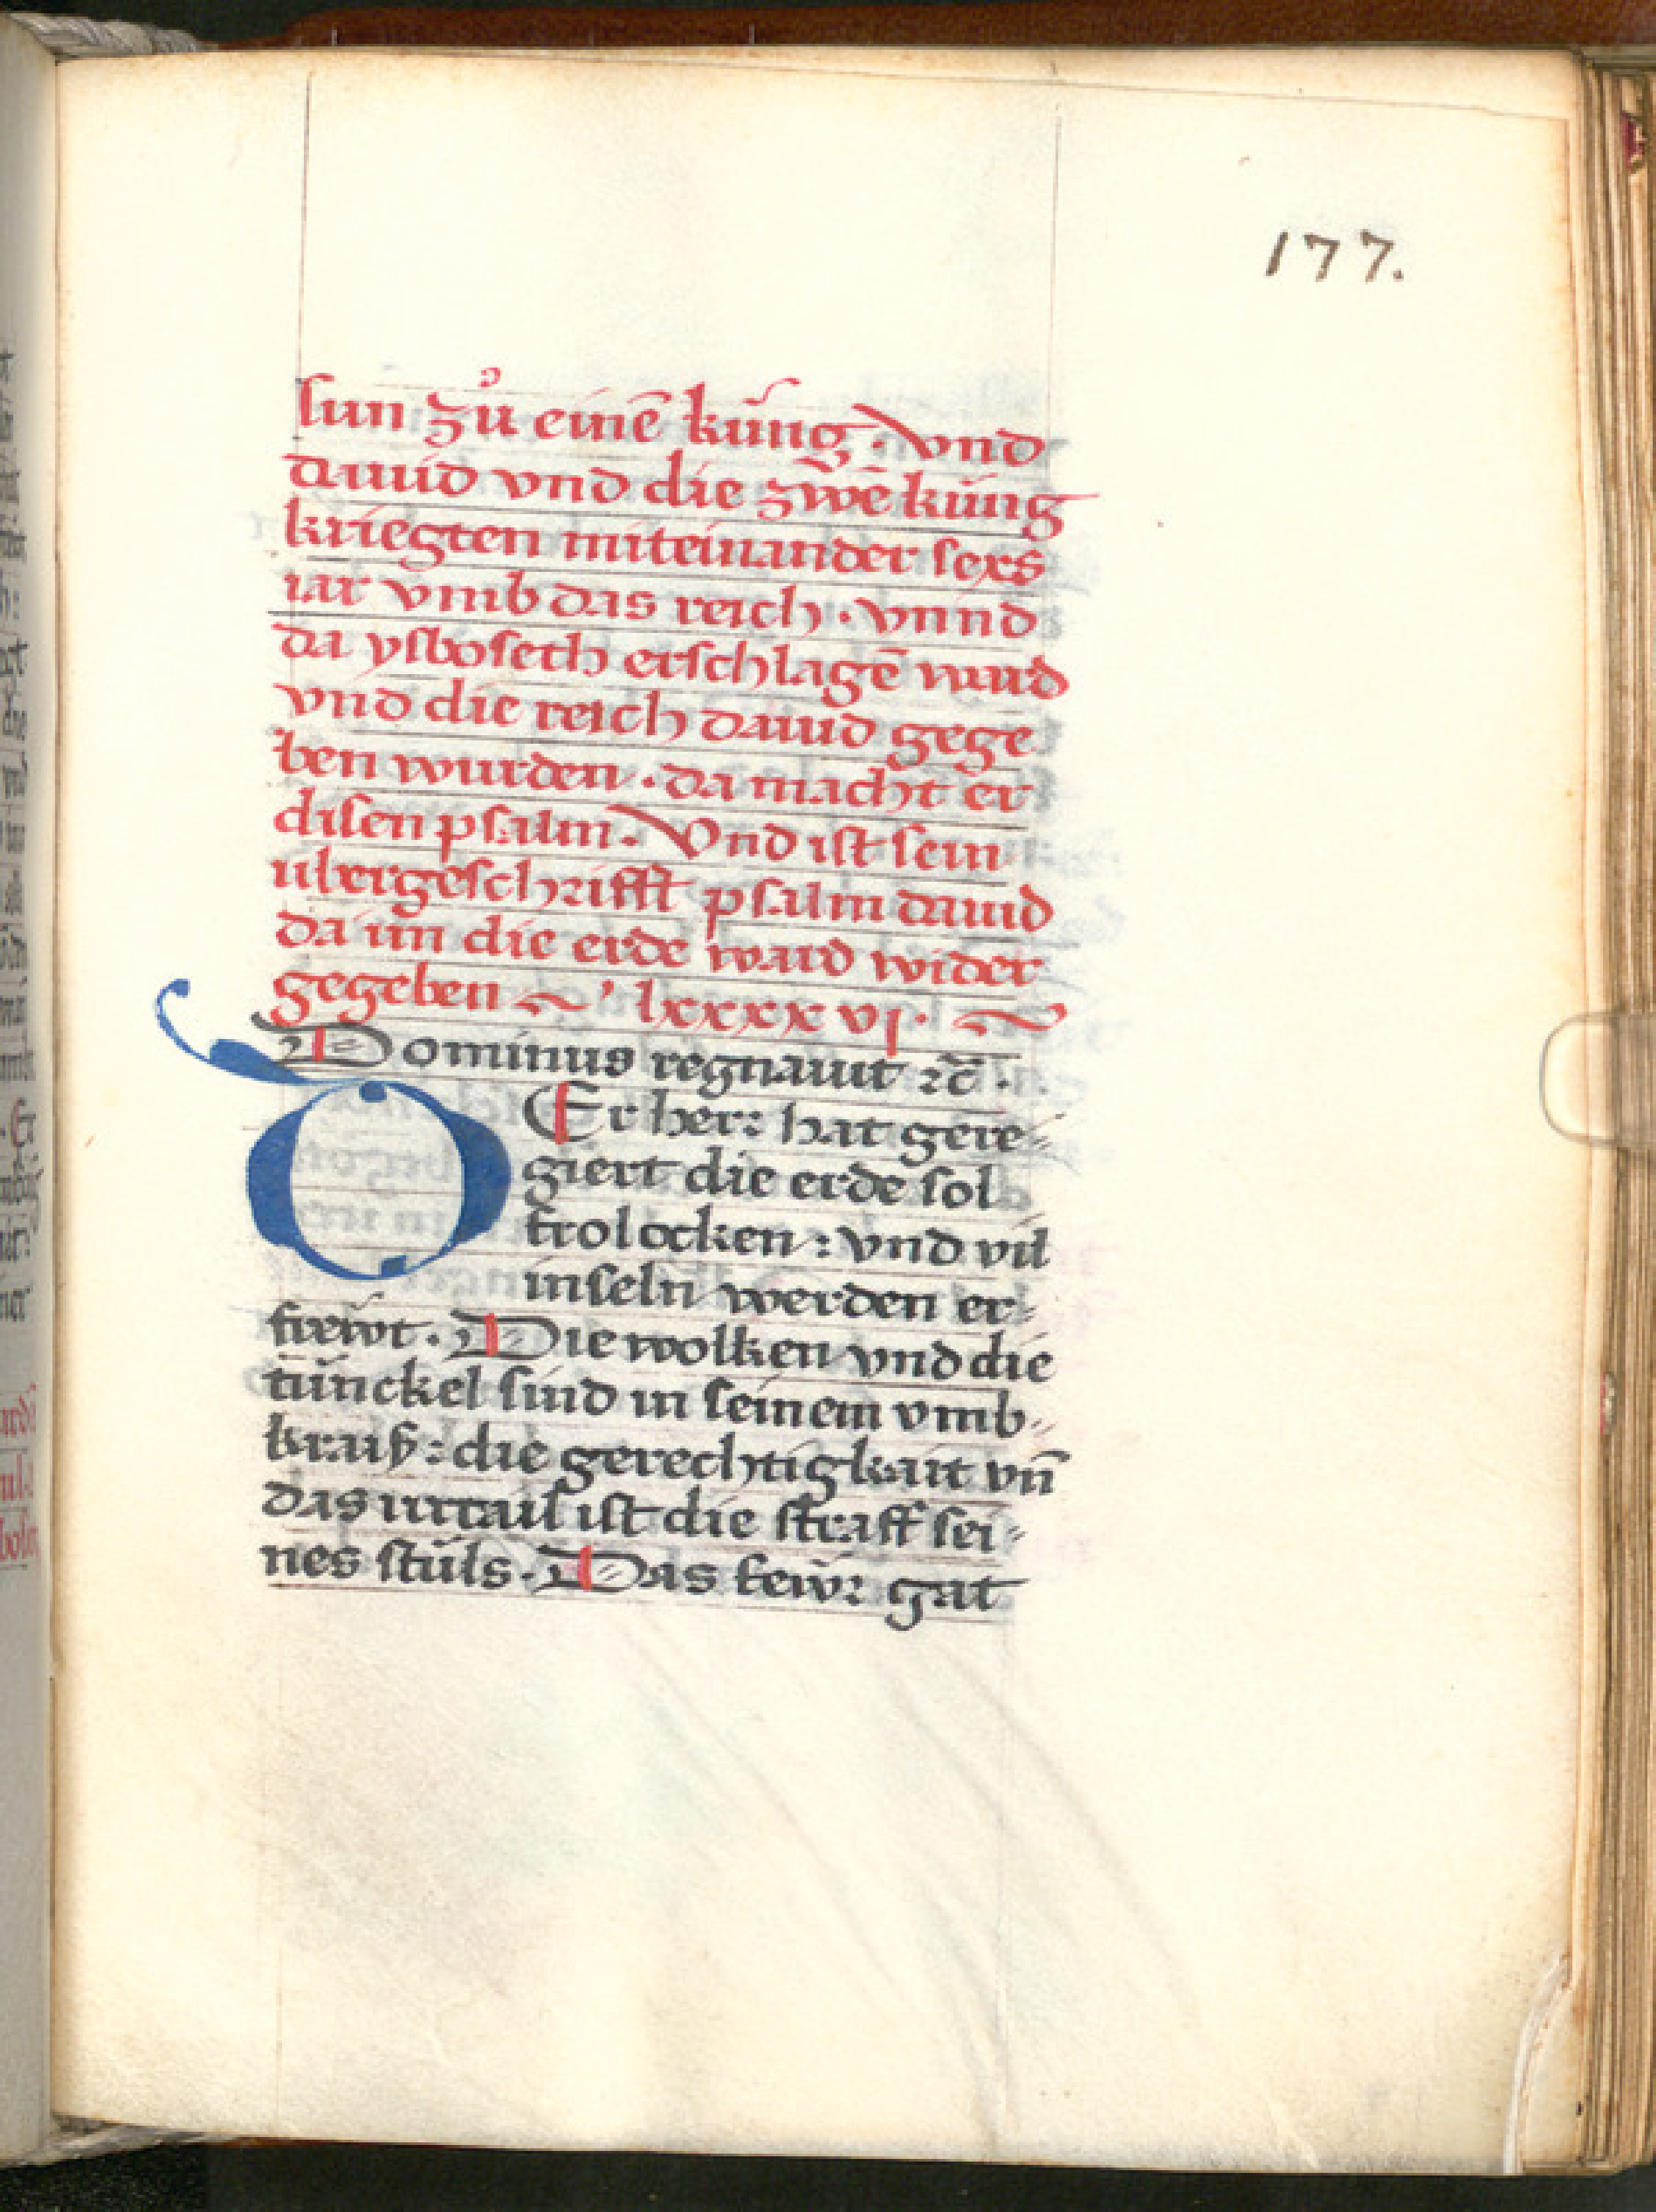 177.
sun zů einē kűng. Vnd
dauid vnd die zwē kűng
kriegten miteinander sexs
iar vmb das reich. vnnd
da ysboseth erschlagē ward
vnd die reich dauid gege
ben wurden. da macht er
disen psalm. Vnd ist sein
ubergeschrifft psalm dauid
da im die erde ward wider
gegeben lxxxxvj.
Dominus regnauit ꝛc̄.
DEr herr hat gere-
giert die erde sol
frolocken: vnd vil
inseln werden er-
frewt. Die wolken vnd die
tűnckel sind in seinem vmb-
kraiß: die gerechtigkait vn̄
das urtail ist die straff sei-
nes stůls. Das fewr gat